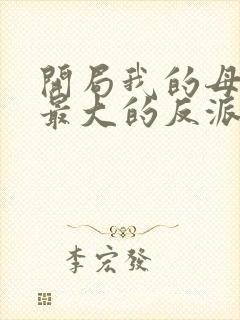 開局我的母
最大的反派
李宏發